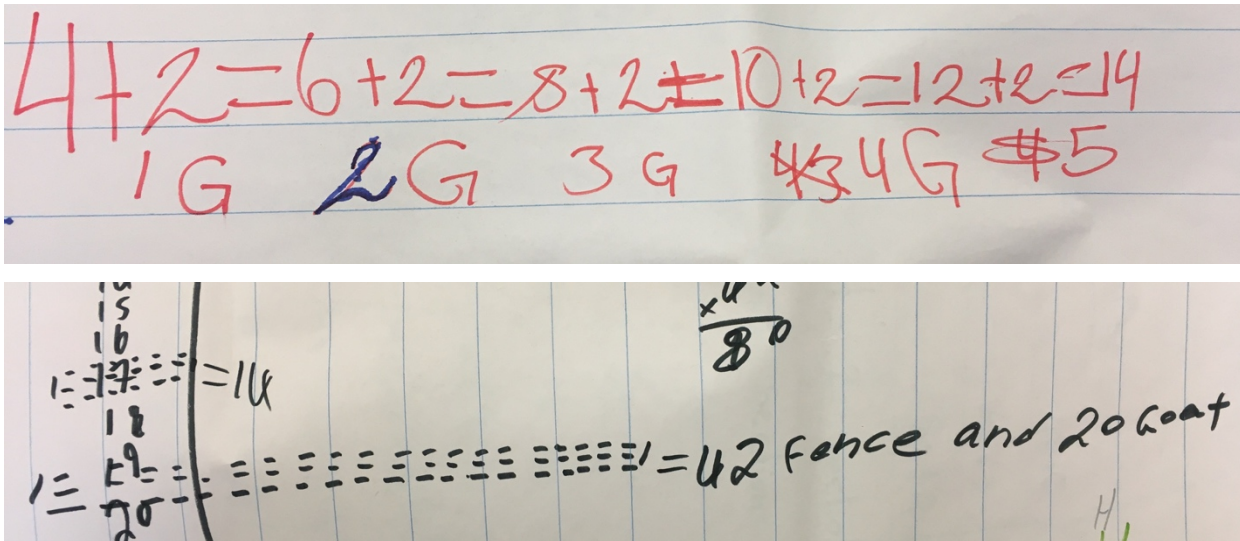 4+2=6+2=8+2=10+2=12+2=14
1 G 2 G 3 G 4 G 5
15
16
17 =14
18
19
20
80
=42 fence and 20 Goat
H